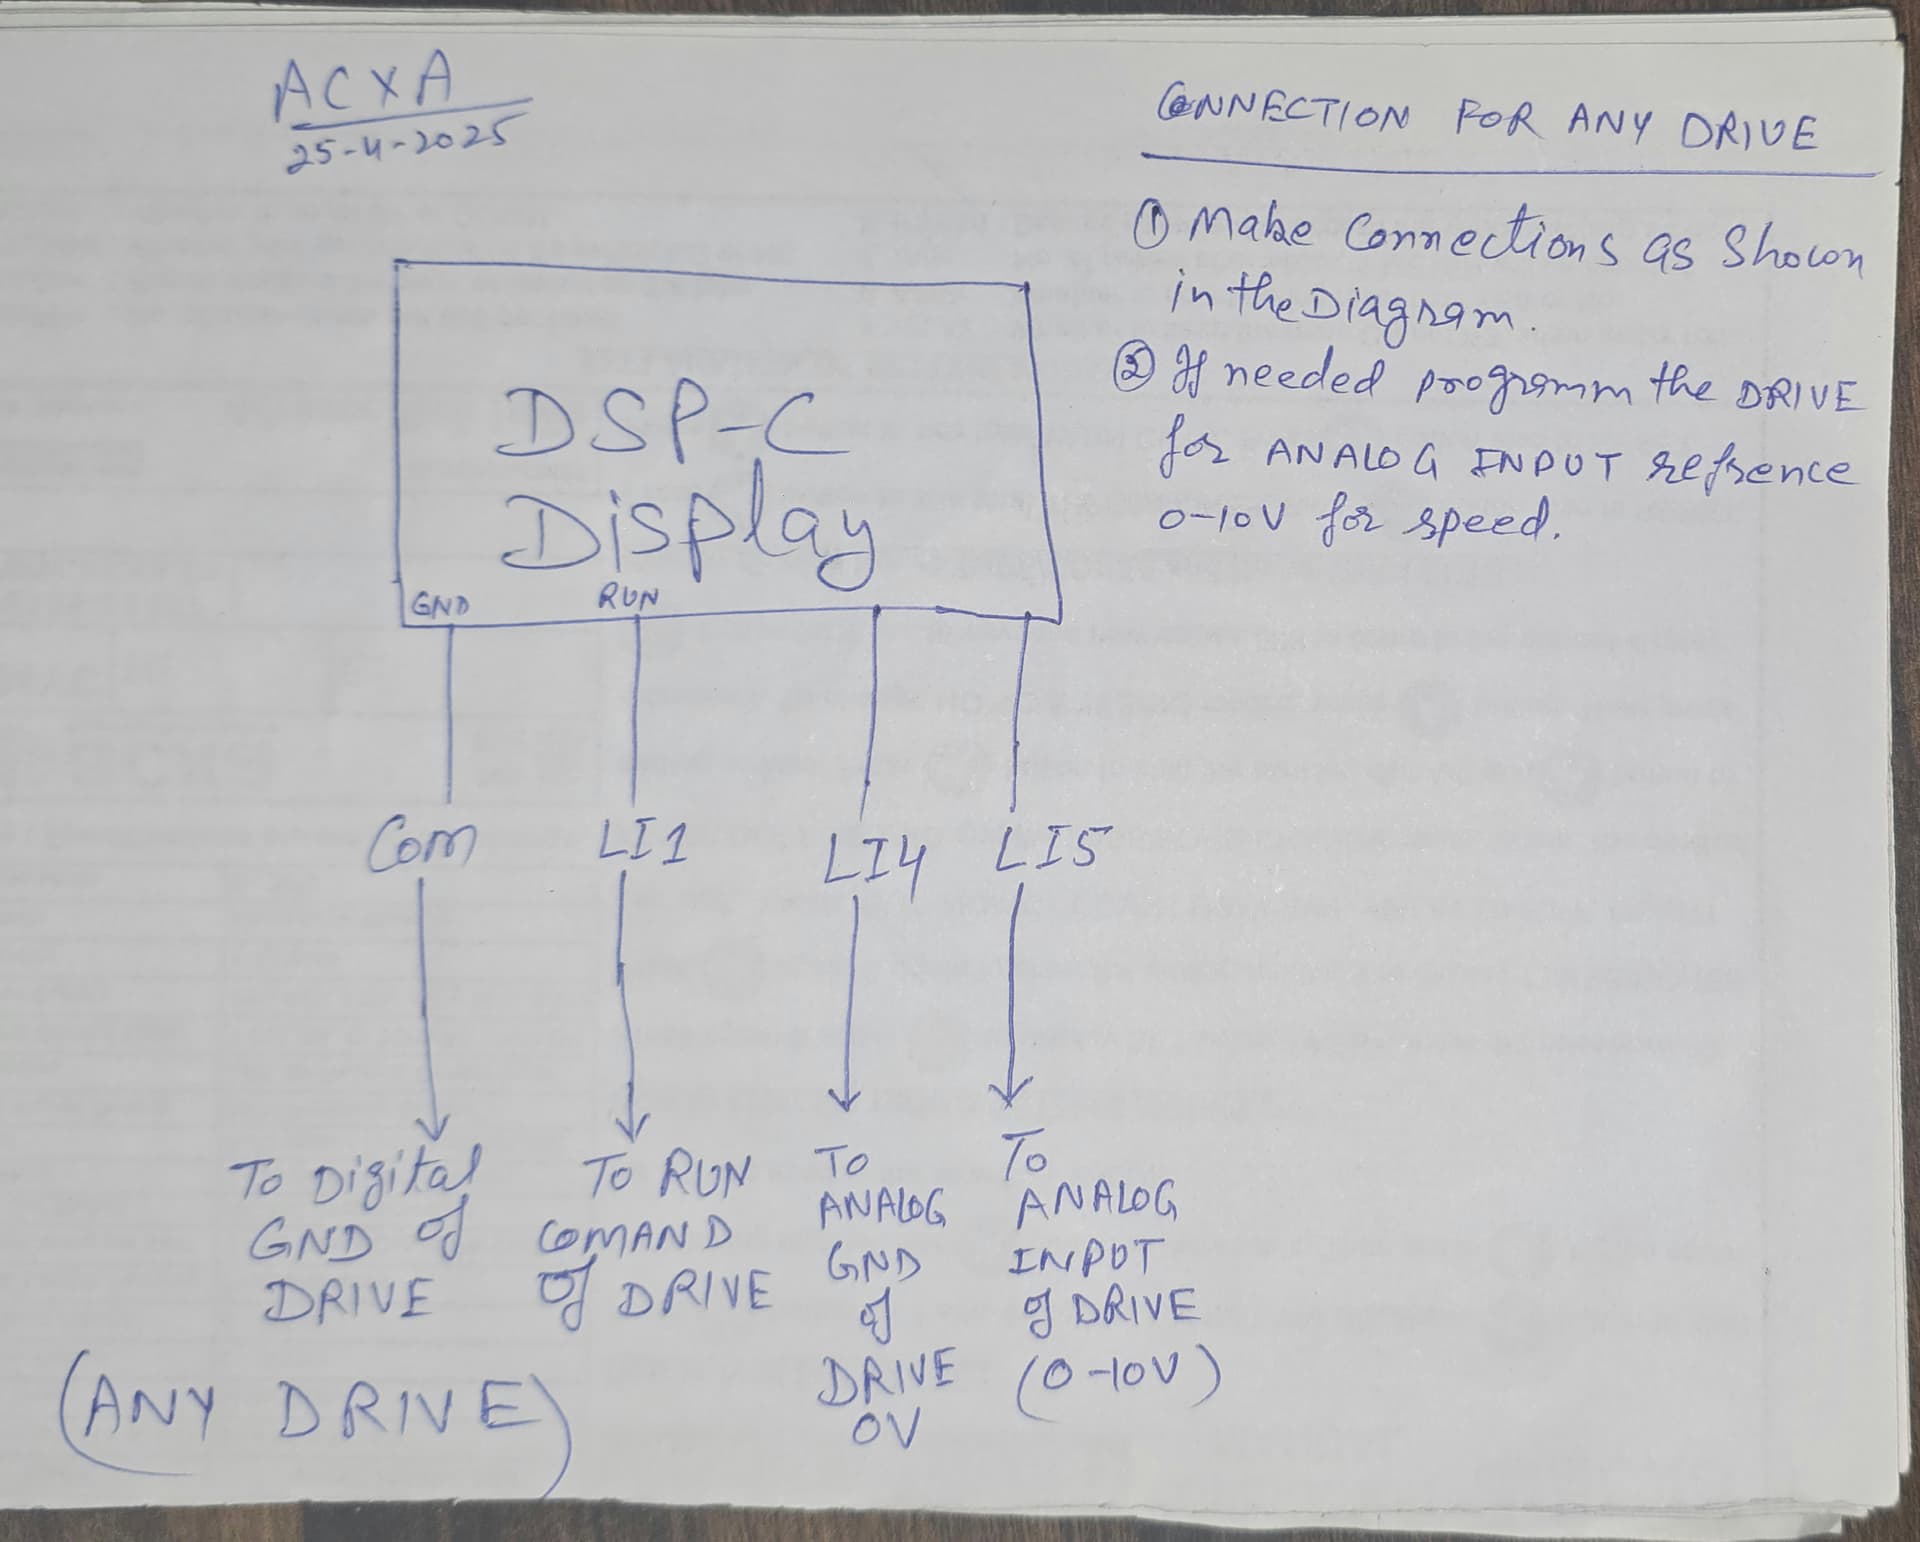 ACXA
25-4-2025
CONNECTION FOR ANY DRIVE
① Make Connections as Shown
in the Diagram.
② If needed programm the DRIVE
for ANALOG INPUT refrence
0-10V for speed.
DSP-C
Display
GND RUN
Com LI1 LI4 LI5
To Digital
GND of
DRIVE
To RUN
COMAND
of DRIVE
To
ANALOG
GND
of
DRIVE
0V
To
ANALOG
INPUT
of DRIVE
(0-10V)
(ANY DRIVE)